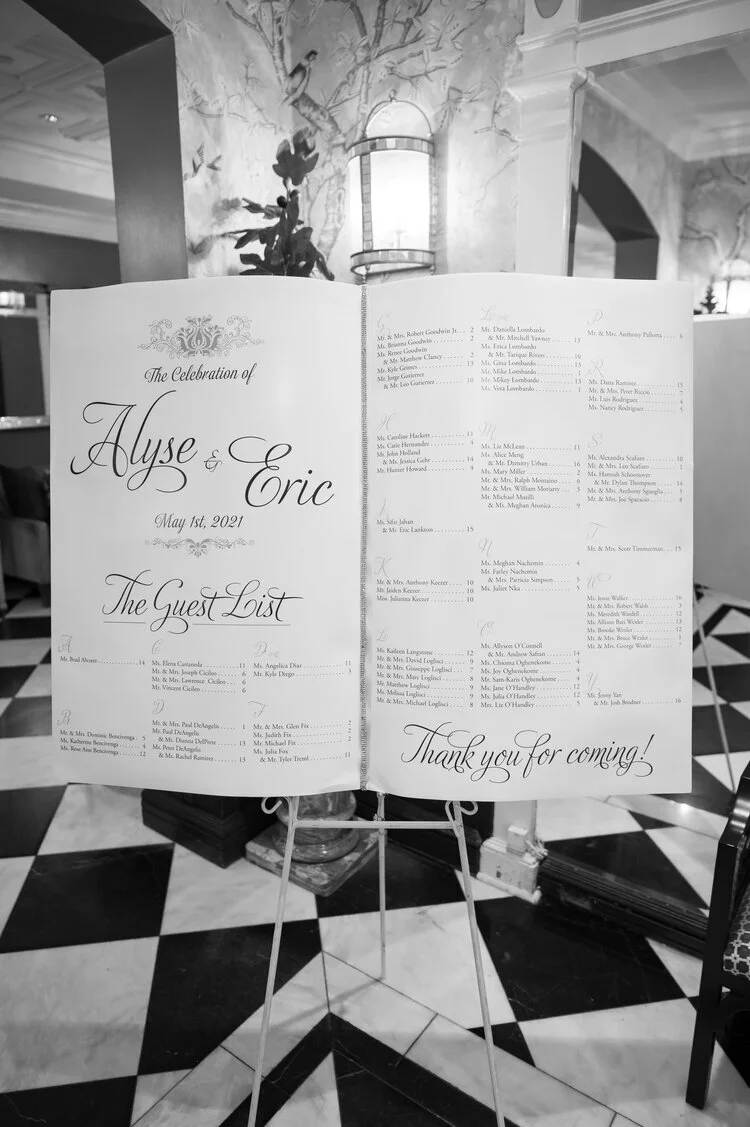 The Celebration of
Alyse & Eric
May 1st, 2021
The Guest List
A
Mr. Brad Alvarez 14
B
Mr. & Mrs. Dominic Bencivenga 5
Ms. Katherine Bencivenga 4
Ms. Rose Ann Bencivenga 12
C
Ms. Elena Castaneda 11
Mr. & Mrs. Joseph Cicileo 6
Mr. & Mrs. Lawrence Cicileo 6
Mr. Vincent Cicileo 6
D
Mr. & Mrs. Paul DeAngelis 1
Mr. Paul DeAngelis
& Ms. Dianna DelPizzo 13
Mr. Peter DeAngelis
& Ms. Rachel Ramirez 13
D
Ms. Angelica Diaz 11
Mr. Kyle Diego 3
F
Mr. & Mrs. Glen Fix 2
Ms. Judith Fix 2
Mr. Michael Fix 2
Ms. Julia Fox
& Mr. Tyler Treml 11
G
Mr. & Mrs. Robert Goodwin Jr. 2
Ms. Brianna Goodwin 2
Ms. Renee Goodwin
& Mr. Matthew Clancy 2
Mr. Kyle Grimes 13
Mr. Jorge Gutierrez
& Mr. Leo Gutierrez 10
H
Ms. Caroline Hackett 11
Ms. Catie Hernandez 4
Mr. John Holland
& Ms. Jessica Gehr 14
Mr. Hunter Howard 4
Ms. Sifat Jahan
& Mr. Eric Lankton 15
K
Mr. & Mrs. Anthony Keezer 10
Mr. Jaiden Keezer 10
Miss. Julianna Keezer 10
L
Ms. Kaileen Langstone 12
Mr. & Mrs. David Loglisci 9
Mr. & Mrs. Giuseppe Loglisci 7
Mr. & Mrs. Marc Loglisci 8
Mr. Matthew Loglisci 9
Ms. Melissa Loglisci 9
Mr. & Mrs. Michael Loglisci 8
Ms. Daniella Lombardo
& Mr. Mitchell Yawney 13
Ms. Erica Lombardo
& Mr. Tarique Rivers 10
Ms. Gina Lombardo 13
Mr. Mike Lombardo 1
Mr. Mikey Lombardo 13
Ms. Vera Lombardo 1
M
Ms. Liz McLean 11
Ms. Alice Meng
& Mr. Dumitry Urban 16
Ms. Mary Miller 2
Mr. & Mrs. Ralph Montaino 6
Mr. & Mrs. William Moriarty 3
Mr. Michael Musilli
& Ms. Meghan Aronica 9
N
Ms. Meghan Nachemin 4
Mr. Farley Nachemin
& Mrs. Patricia Simpson 5
Ms. Juliet Nka 5
O
Ms. Allyson O'Connell
& Mr. Andrew Safran 14
Ms. Chioma Oghenekome 4
Ms. Joy Oghenekome 4
Ms. Sam-Karis Oghenekome 4
Ms. Jane O'Handley 12
Ms. Julia O'Handley 12
Mrs. Liz O'Handley 5
P
Mr. & Mrs. Anthony Pallotta 6
R
Ms. Datta Ramirez 15
Mr. & Mrs. Peter Riccio 7
Mr. Luis Rodriguez 4
Ms. Nancy Rodriguez 5
S
Ms. Alexandra Scafuro 10
Mr. & Mrs. Leo Scafuro 1
Ms. Hannah Schoonover
& Mr. Dylan Thompson 14
Mr. & Ms. Anthony Sgueglia 5
Mr. & Mrs. Joe Sparacio 8
T
Mr. & Mrs. Scott Timmerman 15
W
Ms. Jessie Walker 16
Mr. & Mrs. Robert Walsh 3
Ms. Meredith Wardell 12
Ms. Allison Bari Wexler 13
Ms. Brooke Wexler 12
Mr. & Mrs. Bruce Wexler 1
Mr. & Mrs. George Wexler
Y
Ms. Jenny Yan
& Mr. Josh Brodner 16
Thank you for coming!